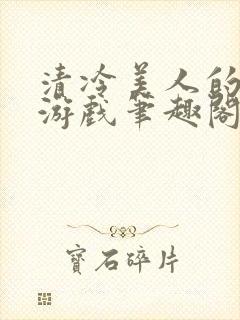 清冷美人的
游戏笔趣阁
寶石碎片